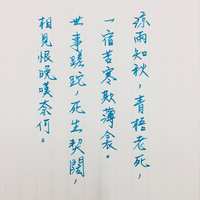 凉雨知秋，青梧老死，
一宿苦寒欺薄衾。
世事蹉跎，死生契闊，
相見恨晚嘆奈何。